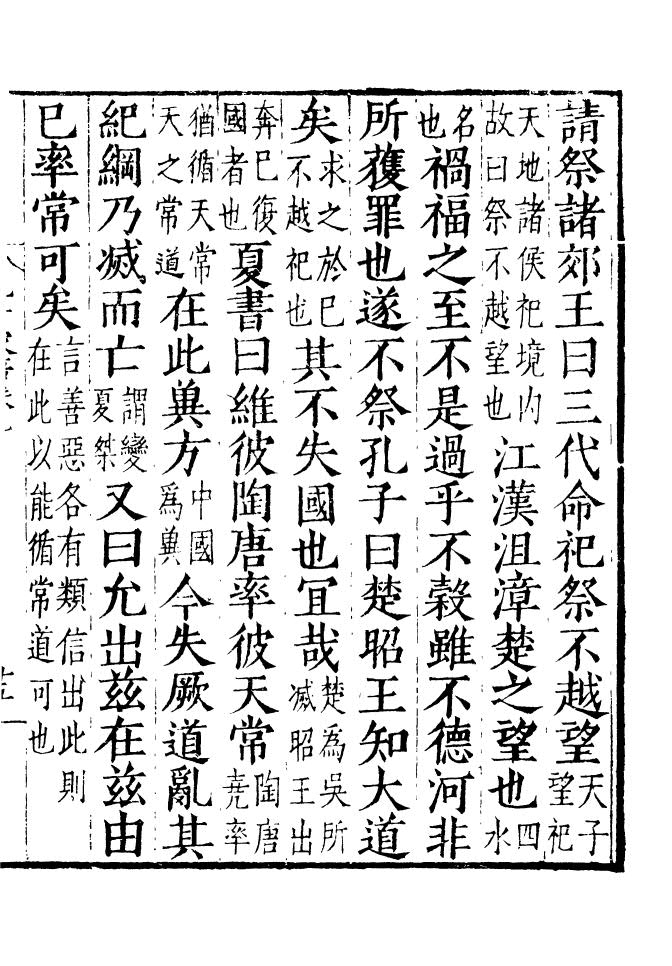 請祭諸郊王曰三代命祀祭不越望天子望祀
天地諸侯祀境內故曰祭不越望也江漢沮漳楚之望也四水
名也禍福之至不是過乎不穀雖不德河非
所獲罪也遂不祭孔子曰楚昭王知大道
矣求之於已不越祀也其不失國也宜哉楚為吳所滅昭王出
奔已復國者也夏書曰維彼陶唐率彼天常陶唐堯率
猶循天常天之常道在此冀方中國為冀今失厥道亂其
紀綱乃滅而亡謂變夏桀又曰允出茲在茲由
已率常可矣言善惡各有類信出此則在此以能循常道可也